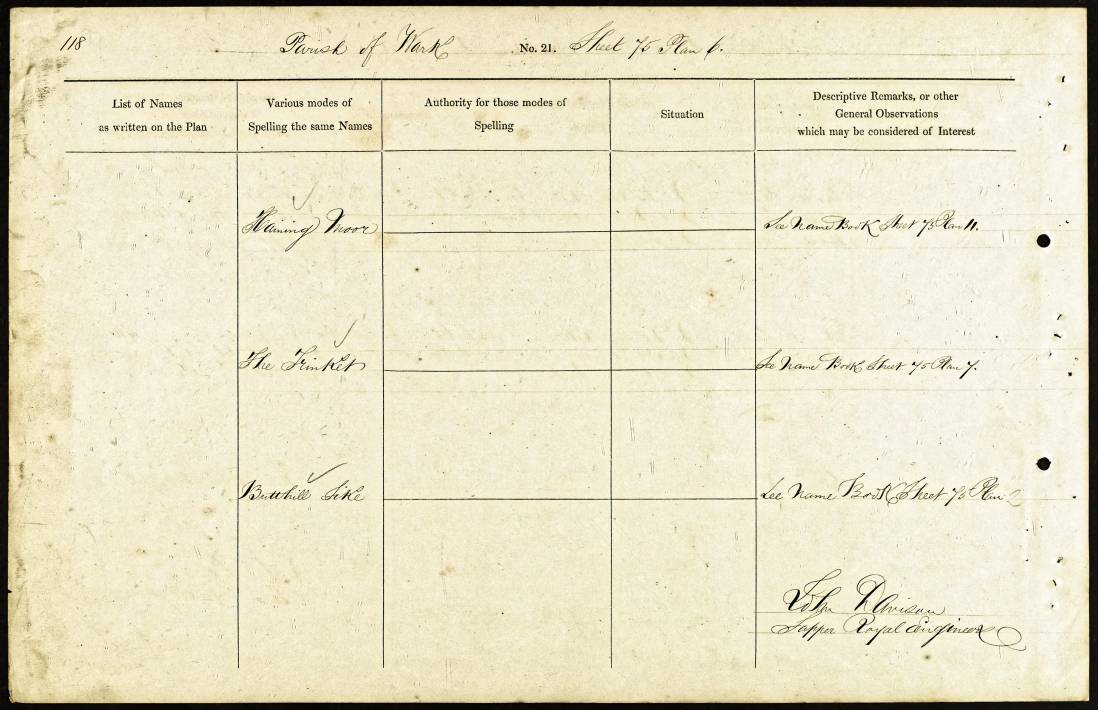 118
Parish of Wark No. 21. Sheet 75 Plan 6.
List of Names
as written on the Plan
Various modes of
Spelling the same Names
Authority for those modes of
Spelling
Situation
Descriptive Remarks, or other
General Observations
which may be considered of Interest
Haining Moor See Name Book Sheet 75 Plan 11.
The Trinket See Name Book Sheet 75 Plan 7.
Butthill Sike See Name Book Sheet 75 Plan 2
John Davison
Sapper Royal Engineers